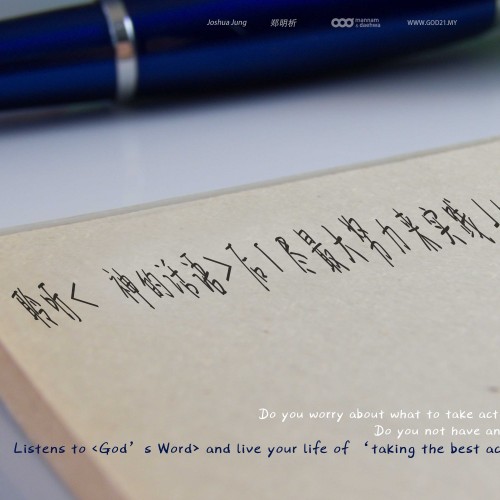 Joshua Jung 郑明析 mannam & daehwa WWW.GOD21.MY
聆听< 神的话语>后|尽最大努力来实践|
Do you worry about what to take act
Do you not have an
Listens to <God’s Word> and live your life of ‘taking the best ac